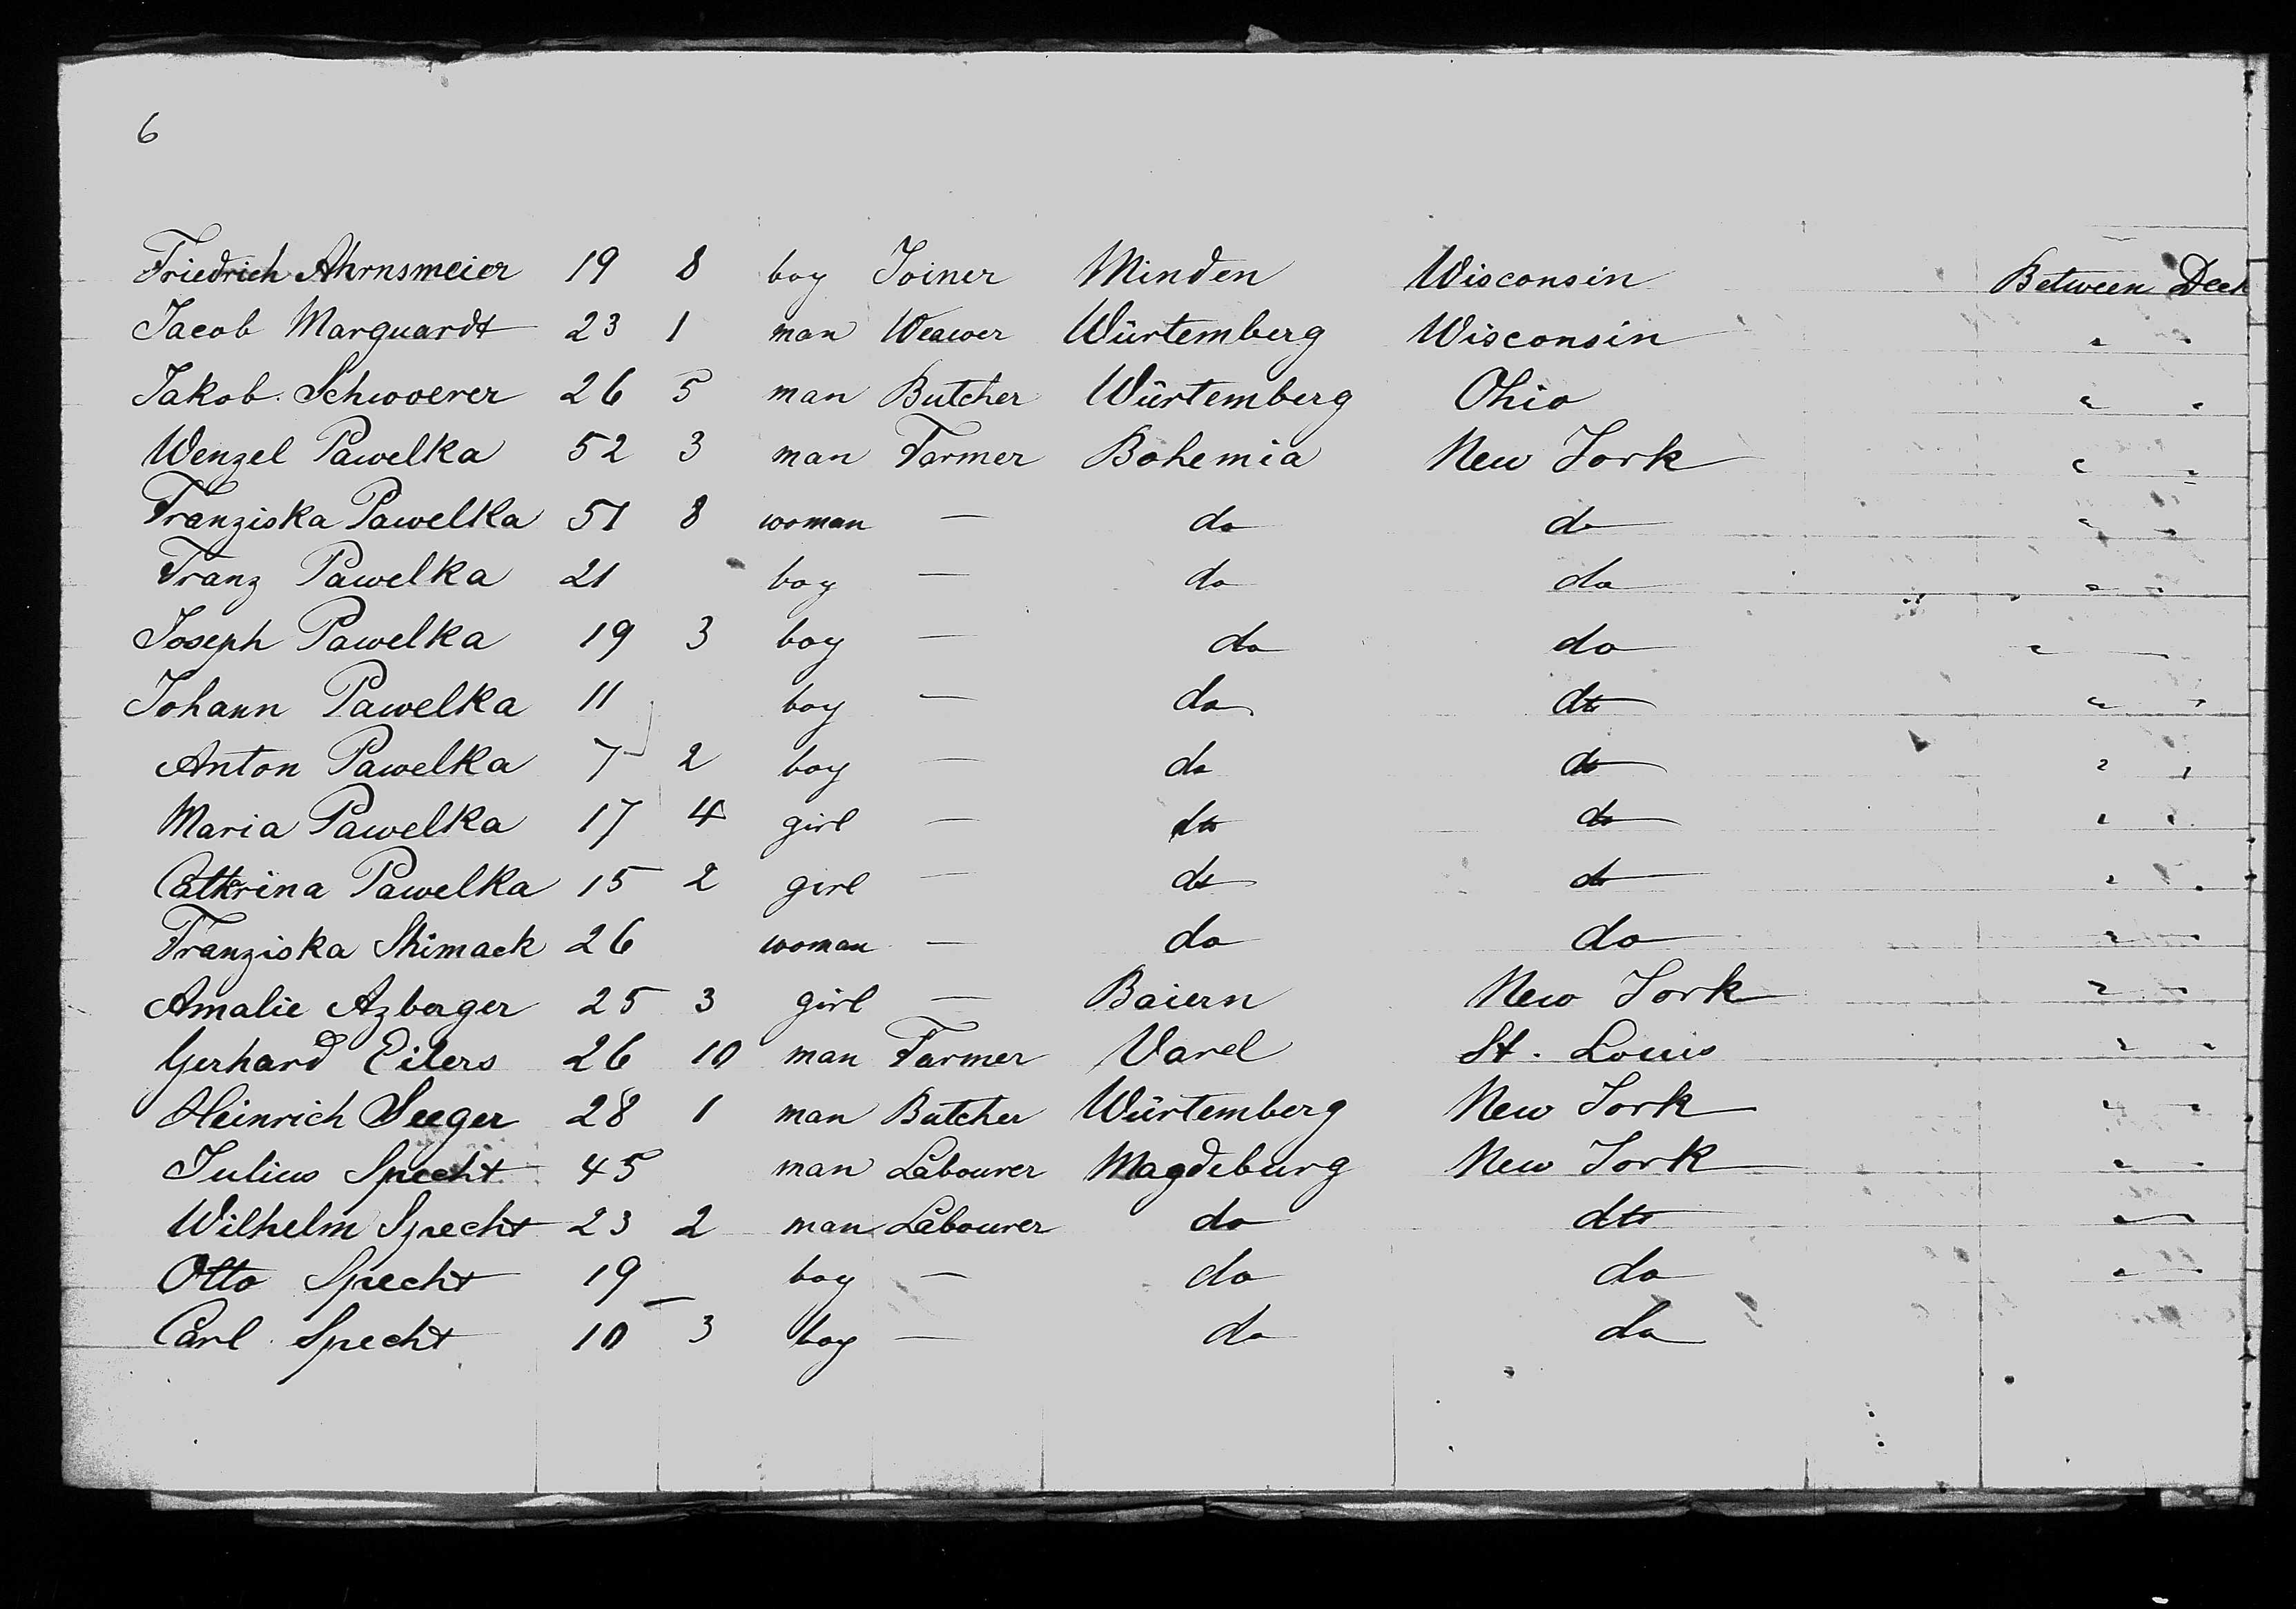 6
Friedrich Ahrnsmeier 19 8 boy Joiner Minden Wisconsin Between Deck
Jacob Marquardt 23 1 man Weawer Würtemberg Wisconsin " "
Jakob Schwoerer 26 5 man Butcher Würtemberg Ohio " "
Wenzel Pawelka 52 3 man Farmer Bohemia New York " "
Franziska Pawelka 51 8 woman — do do " "
Franz Pawelka 21 boy — do do " "
Joseph Pawelka 19 3 boy — do do " "
Johann Pawelka 11 boy — do dto " "
Anton Pawelka 7 2 boy — do do " "
Maria Pawelka 17 4 girl — dto do " "
Cathrina Pawelka 15 2 girl — do do " "
Franziska Shimack 26 woman — do do " "
Amalie Azberger 25 3 girl — Baiern New York " "
Gerhard Eilers 26 10 man Farmer Varel St. Louis " "
Heinrich Seeger 28 1 man Butcher Würtemberg New York " "
Julius Specht 45 man Labourer Magdeburg New York " "
Wilhelm Specht 23 2 man Labourer do dto " "
Otto Specht 19 boy — do do " "
Carl Specht 10 3 boy — do do